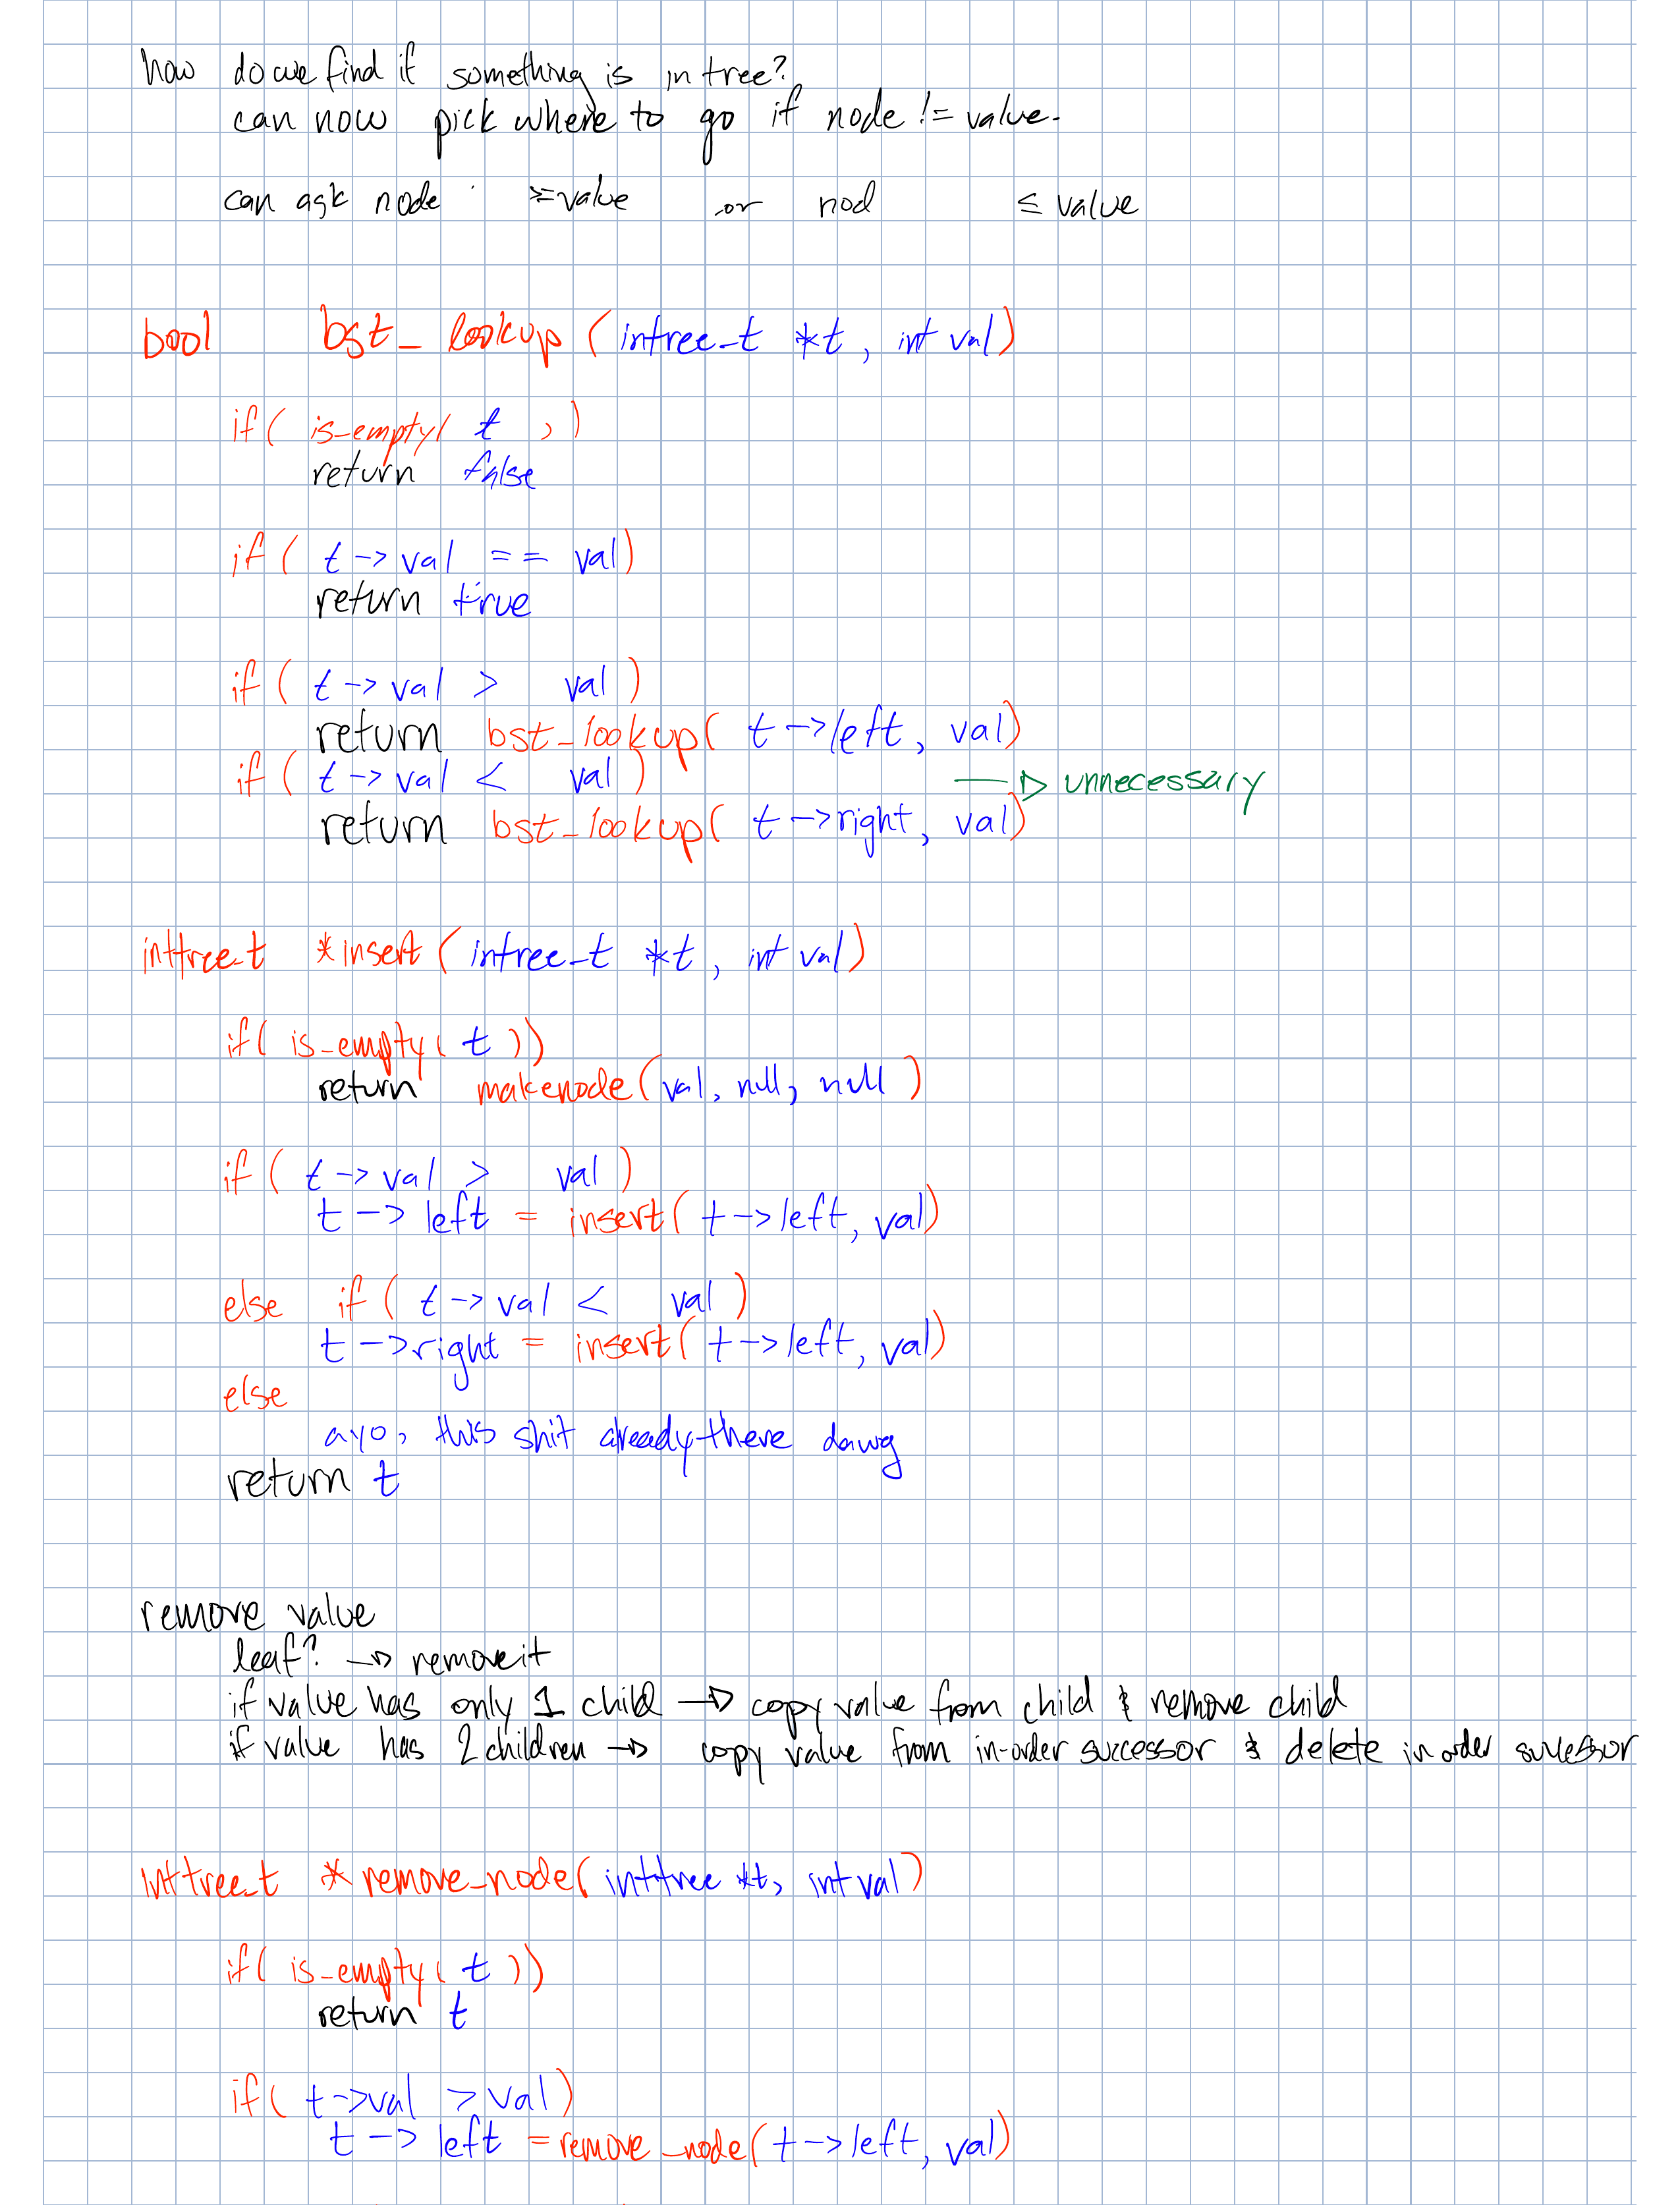 how do we find if something is in tree?
can now pick where to go if node != value.
can ask node >=value or nod ≤ value
bool bst_lookup (intree_t *t, int val)
if( is_empty( t , )
return false
if( t->val == val)
return true
if( t->val > val )
return bst_lookup( t->left, val)
if( t->val < val )
—▷ unnecessary
return bst_lookup( t->right, val)
inttree_t *insert (intree_t *t, int val)
if( is_empty( t ))
return makenode(val, null, null )
if( t->val > val )
t-> left = insert( t->left, val)
else if( t->val < val )
t->right = insert( t->left, val)
else
ayo, this shit already there dawg
return t
remove value
leaf? → remove it
if value has only 1 child → copy value from child & remove child
if value has 2 children → copy value from in-order successor & delete in order sucessor
inttree_t * remove_node( inttree *t, int val)
if( is_empty( t ))
return t
if( t->val > val)
t-> left = remove_node( t->left, val)